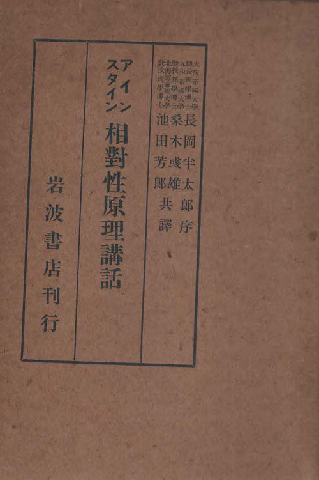 長岡半太郎序
桑木彧雄
池田芳郎 共譯
アインスタイン 相對性原理講話
岩波書店刊行